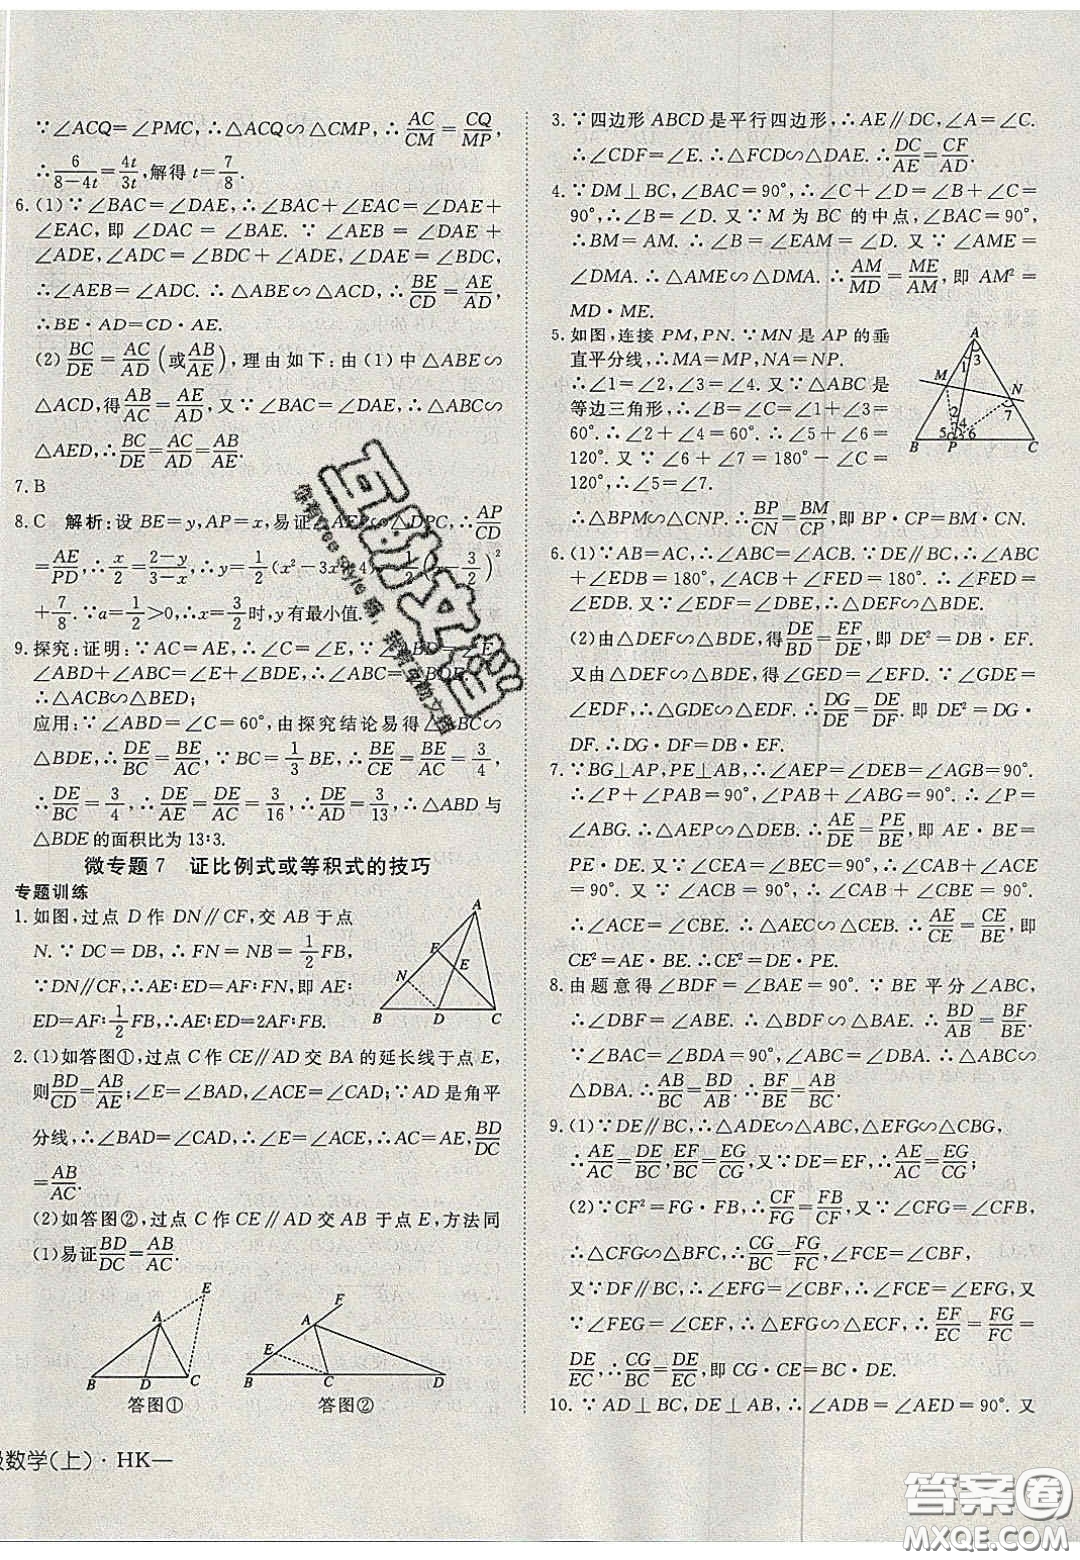 ∵∠ACQ=∠PMC,∴△ACQ∽△CMP,∴AC/CM=CQ/MP,
∴6/(8-4t)=4t/3t,解得 t=7/8.
6.(1)∵∠BAC=∠DAE,∴∠BAC+∠EAC=∠DAE+
∠EAC,即∠DAC=∠BAE. ∵∠AEB=∠ADE+
∠ADE,∠ADC=∠BDC+∠ADE,∠DAE=∠BDC,
∴∠AEB=∠ADC. ∴△ABE∽△ACD,∴BE/CD=AE/AD.
∴BE·AD=CD·AE.
(2)BC/DE=AC/AD(或AB/AE),理由如下:由(1)中△ABE∽
△ACD,得AB/AC=AE/AD,又∵∠BAC=∠DAE,∴△ABC∽
△AED,∴BC/DE=AC/AD=AB/AE.
7. B
8. C 解析:设 BE=y,AP=x,易证△AEP∽△DPC,∴AP/CD
=AE/PD,∴x/2=(2-y)/(3-x),∴y=1/2(x²-3x+4)
+7/8.∵a=1/2>0,∴x=3/2时,y有最小值.
9. 探究:证明:∵AC=AE,∴∠C=∠E,∵
∠ABD+∠ABC=∠E+∠BDE,∴∠ABC=∠BDE.
∴△ACB∽△BED;
应用:∵∠ABD=∠C=60°,由探究结论易得△ABC∽
△BDE,∴DE/BC=BE/AC,∵BC=1/3BE,∴BE/CE=BE/AC=3/4,
∴DE/BC=3/4,∴DE/AE=DE/AC=3/16,∴DE/AD=3/13,∴△ABD与
△BDE的面积比为13∶3.
微专题7 证比例式或等积式的技巧
专题训练
1. 如图,过点 D 作 DN∥CF,交 AB 于点
N. ∵DC=DB,∴FN=NB=1/2FB,
∵DN∥CF,∴AE∶ED=AF∶FN,即 AE∶
ED=AF∶1/2FB,∴AE∶ED=2AF∶FB.
A
F
E
N
B D C
2.(1)如答图①,过点 C 作 CE∥AD 交 BA 的延长线于点 E,
则BD/CD=AB/AE;∠E=∠BAD,∠ACE=∠CAD;∵AD 是角平
分线,∴∠BAD=∠CAD,∴∠E=∠ACE,∴AC=AE,BD/DC
=AB/AC.
(2)如答图②,过点 C 作 CE∥AD 交 AB 于点 E,方法同
(1)易证BD/DC=AB/AC.
E
A
B D C
答图①
F
A
E
B C D
答图②
级数学(上)·HK—
3. ∵四边形 ABCD 是平行四边形,∴AE∥DC,∠A=∠C.
∴∠CDF=∠E. ∴△FCD∽△DAE. ∴DC/AE=CF/AD.
4. ∵DM⊥BC,∠BAC=90°,∴∠C+∠D=∠B+∠C=
90°,∴∠B=∠D. 又∵M 为 BC 的中点,∠BAC=90°,
∴BM=AM. ∴∠B=∠EAM=∠D. 又∵∠AME=
∠DMA. ∴△AME∽△DMA. ∴AM/MD=ME/AM,即 AM²=
MD·ME.
5. 如图,连接 PM,PN. ∵MN 是 AP 的垂
直平分线,∴MA=MP,NA=NP.
∴∠1=∠2,∠3=∠4. 又∵△ABC 是
等边三角形,∴∠B=∠C=∠1+∠3=
60°. ∴∠2+∠4=60°,∴∠5+∠6=
120°. 又∵∠6+∠7=180°-∠C=
120°,∴∠5=∠7.
A
1 3
M N
2 4 7
5 6
B P C
∴△BPM∽△CNP. ∴BP/CN=BM/CP,即 BP·CP=BM·CN.
6.(1)∵AB=AC,∴∠ABC=∠ACB. ∵DE∥BC,∴∠ABC
+∠EDB=180°,∠ACB+∠FED=180°. ∴∠FED=
∠EDB. 又∵∠EDF=∠DBE,∴△DEF∽△BDE.
(2)由△DEF∽△BDE,得DE/BD=EF/DE,即 DE²=DB·EF.
又由△DEF∽△BDE,得∠GED=∠EFD. 又∵∠GDE=
∠EDF,∴△GDE∽△EDF. ∴DG/DE=DE/DF. 即 DE²=DG·
DF. ∴DG·DF=DB·EF.
7. ∵BG⊥AP,PE⊥AB,∴∠AEP=∠DEB=∠AGB=90°.
∴∠P+∠PAB=90°,∠PAB+∠ABG=90°. ∴∠P=
∠ABG. ∴△AEP∽△DEB. ∴AE/DE=PE/BE,即 AE·BE=
PE·DE. 又∵CE⊥AB,∴∠CEA=∠BEC=90°,∴∠CAB+∠ACE
=90°. 又∵∠ACB=90°,∴∠CAB+∠CBE=90°.
∴∠ACE=∠CBE. ∴△AEC∽△CEB. ∴AE/CE=CE/BE,即
CE²=AE·BE. ∴CE²=DE·PE.
8. 由题意得∠BDF=∠BAE=90°. ∵BE 平分∠ABC,
∴∠DBF=∠ABE. ∴△BDF∽△BAE. ∴BD/AB=BF/BE.
∵∠BAC=∠BDA=90°,∠ABC=∠DBA. ∴△ABC∽
△DBA. ∴AB/BC=BD/AB. ∴BF/BE=AB/BC.
9.(1)∵DE∥BC,∴△ADE∽△ABC,△EFG∽△CBG,
∴AE/AC=DE/BC,EF/BC=EG/CG,又∵DE=EF,∴AE/AC=EG/CG;
(2)∵CF²=FG·FB,∴CF/FG=FB/CF,又∵∠CFG=∠CFB,
∴△CFG∽△BFC,∴CG/BC=FG/FC,∠FCE=∠CBF,
又∵DF∥BC,∴∠EFG=∠CBF,∴∠FCE=∠EFG,又
∵∠FEG=∠CEF,∴△EFG∽△ECF,∴EF/EC=FG/FC=
DE/EC,∴CG/BC=DE/EC,即 CG·CE=BC·DE.
10. ∵AD⊥BC,DE⊥AB,∴∠ADB=∠AED=90°. 又
答案圈
MXQE.COM